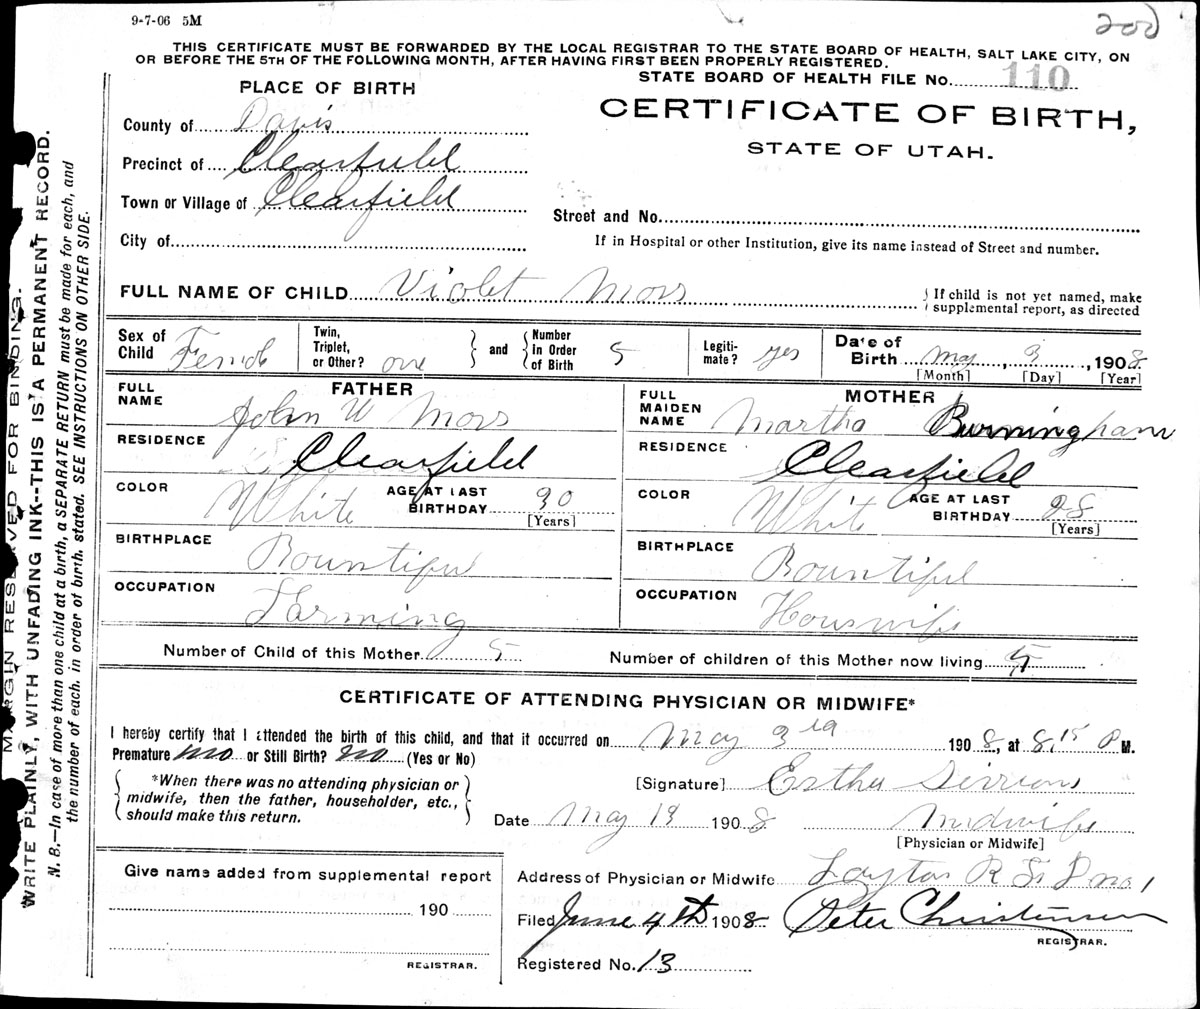 9-7-06 5M
200
THIS CERTIFICATE MUST BE FORWARDED BY THE LOCAL REGISTRAR TO THE STATE BOARD OF HEALTH, SALT LAKE CITY, ON
OR BEFORE THE 5TH OF THE FOLLOWING MONTH, AFTER HAVING FIRST BEEN PROPERLY REGISTERED.
STATE BOARD OF HEALTH FILE No. 110
PLACE OF BIRTH
CERTIFICATE OF BIRTH,
STATE OF UTAH.
County of Davis
Precinct of Clearfield
Town or Village of Clearfield
Street and No.
City of
If in Hospital or other Institution, give its name instead of Street and number.
FULL NAME OF CHILD Violet Moss
If child is not yet named, make
supplemental report, as directed
Sex of Child Female
Twin, Triplet, or Other? one
and
Number In Order of Birth 5
Legiti-mate? yes
Date of Birth May 3, 1908
[Month] [Day] [Year]
FATHER
FULL NAME John W Moss
RESIDENCE Clearfield
COLOR White
AGE AT LAST BIRTHDAY 30
[Years]
BIRTHPLACE Bountiful
OCCUPATION Farming
MOTHER
FULL MAIDEN NAME Martha Burningham
RESIDENCE Clearfield
COLOR White
AGE AT LAST BIRTHDAY 28
[Years]
BIRTHPLACE Bountiful
OCCUPATION Houswife
Number of Child of this Mother 5
Number of children of this Mother now living 5
CERTIFICATE OF ATTENDING PHYSICIAN OR MIDWIFE*
I hereby certify that I attended the birth of this child, and that it occurred on May 3rd 1908, at 8,15 P M.
Premature no or Still Birth? no (Yes or No)
*When there was no attending physician or
midwife, then the father, householder, etc.,
should make this return.
[Signature] Esther
Date May 19 1908
Midwife
[Physician or Midwife]
Give name added from supplemental report
190
REGISTRAR.
Address of Physician or Midwife Layton R F D no 1
Filed June 4th 1908 Peter Christensen
REGISTRAR.
Registered No. 13
MARGIN RESERVED FOR BINDING.
WRITE PLAINLY, WITH UNFADING INK--THIS IS A PERMANENT RECORD.
N. B.—In case of more than one child at a birth, a SEPARATE RETURN must be made for each, and
the number of each, in order of birth, stated. SEE INSTRUCTIONS ON OTHER SIDE.